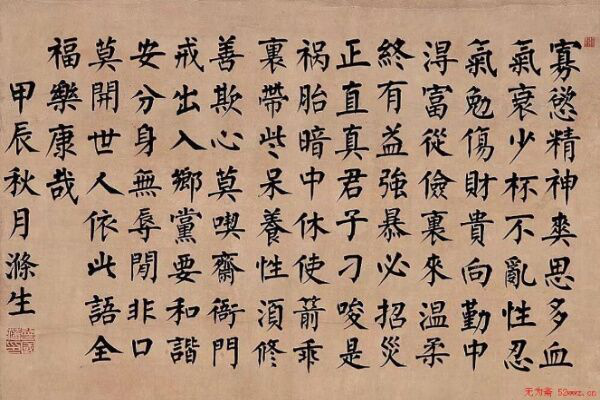 寡慾精神爽思多血
氣衰少杯不亂性忍
氣勉傷財貴向勤中
淂富從儉裏來温柔
終有益強暴必招災
正直真君子刁唆是
祸胎暗中休使箭乖
裏帶些呆養性須修
善欺心莫喫齋衙門
戒出入鄉黨要和諧
安分身無辱閒非口
莫開世人依此語全
福樂康哉
甲辰秋月滌生
无为斋 52wwz.cn